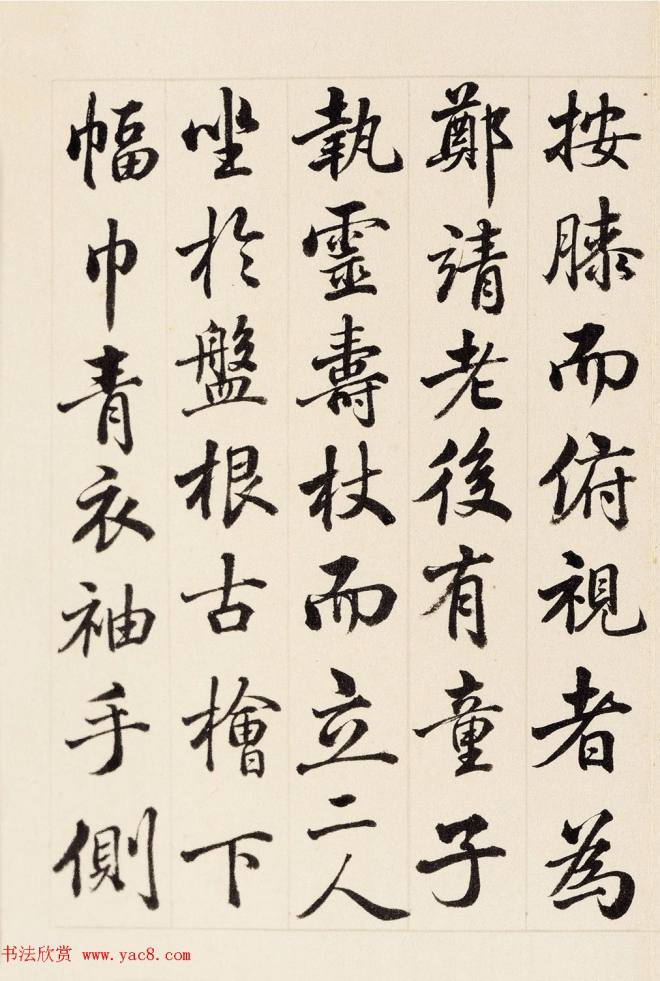 按膝而俯視者為
鄭靖老後有童子
執靈壽杖而立二人
坐於盤根古檜下
幅巾青衣袖手側
书法欣赏 www.yac8.com